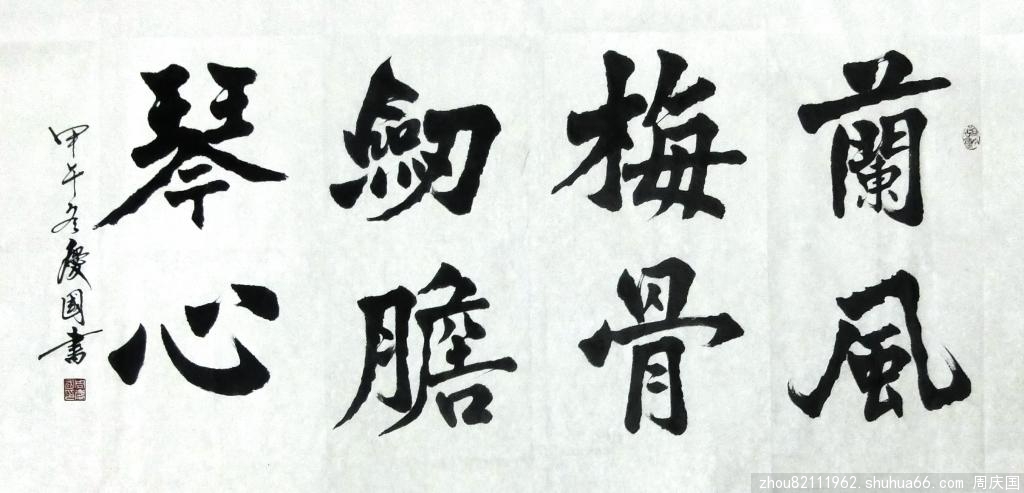 蘭風
梅骨
劒膽
琴心
甲午冬慶國書
zhou82111962.shuhua66.com 周庆国